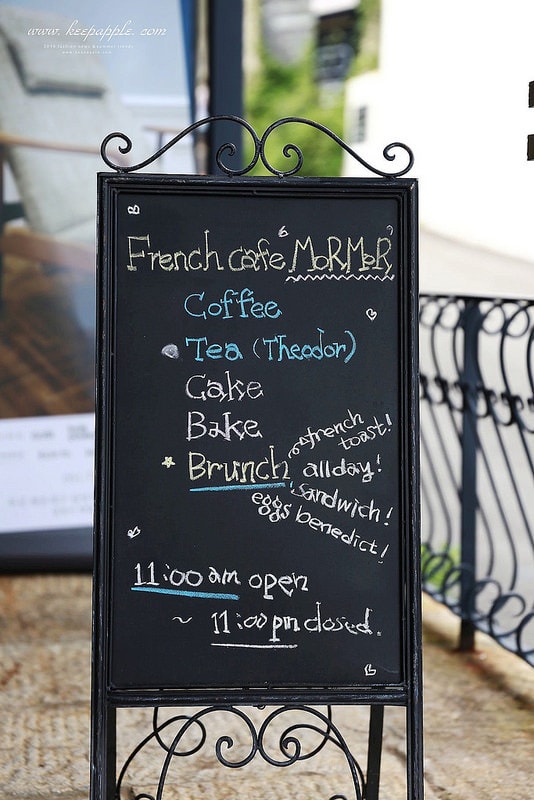 www.keepapple.com
French cafe "MoRMoR"
Coffee
Tea (Theodor)
Cake
Bake
Brunch
french
toast!
allday!
sandwich!
eggs benedict!
11:00 am open
~ 11:00 pm closed.